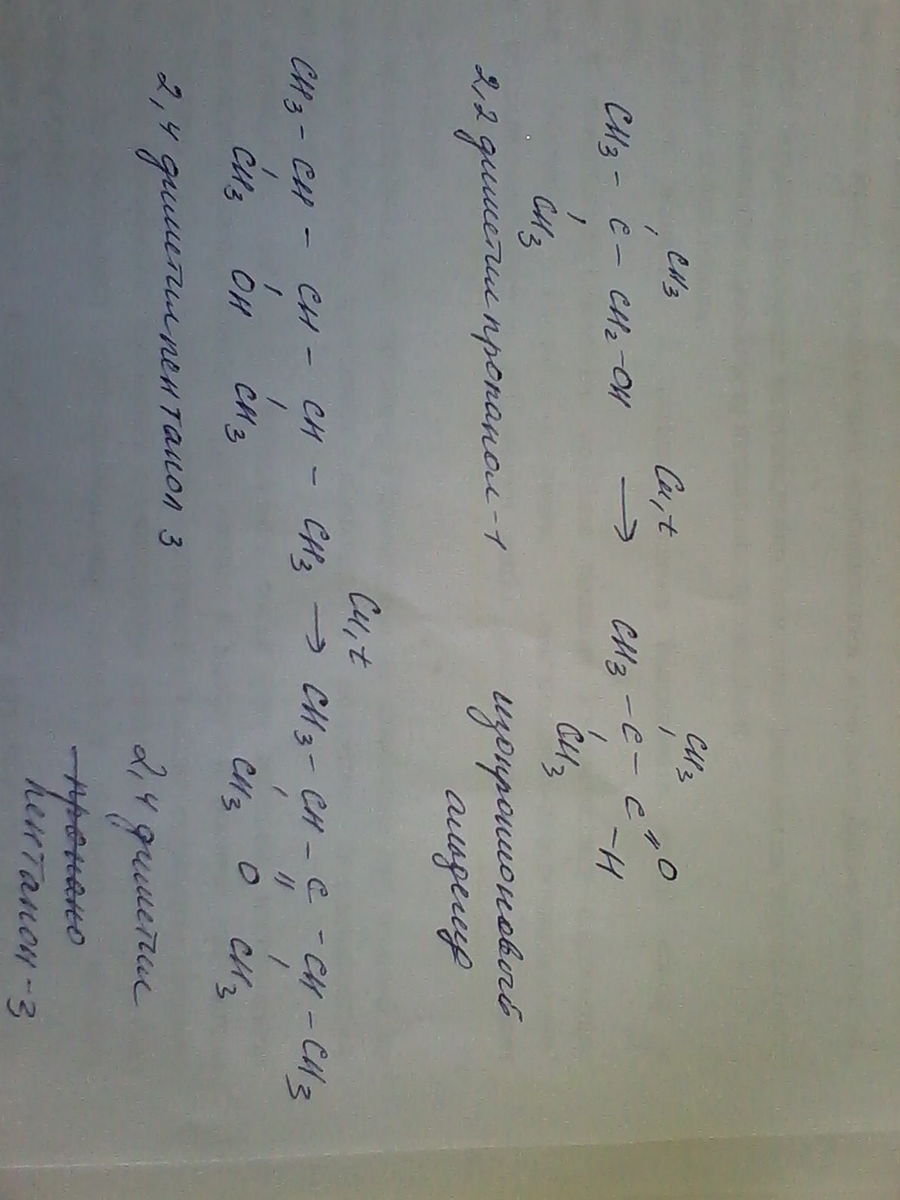 CH3 Cu,t CH3 O
CH3 - C - CH2 - OH → CH3 - C - C - H
CH3 CH3
2,2 диметилпропанол-1 изопропионовый
альдегид
Cu,t
CH3 - CH - CH - CH - CH3 → CH3 - CH - C - CH - CH3
CH3 OH CH3 CH3 O CH3
2,4 диметилпентанол 3 2,4 диметил
пропано
пентанон-3